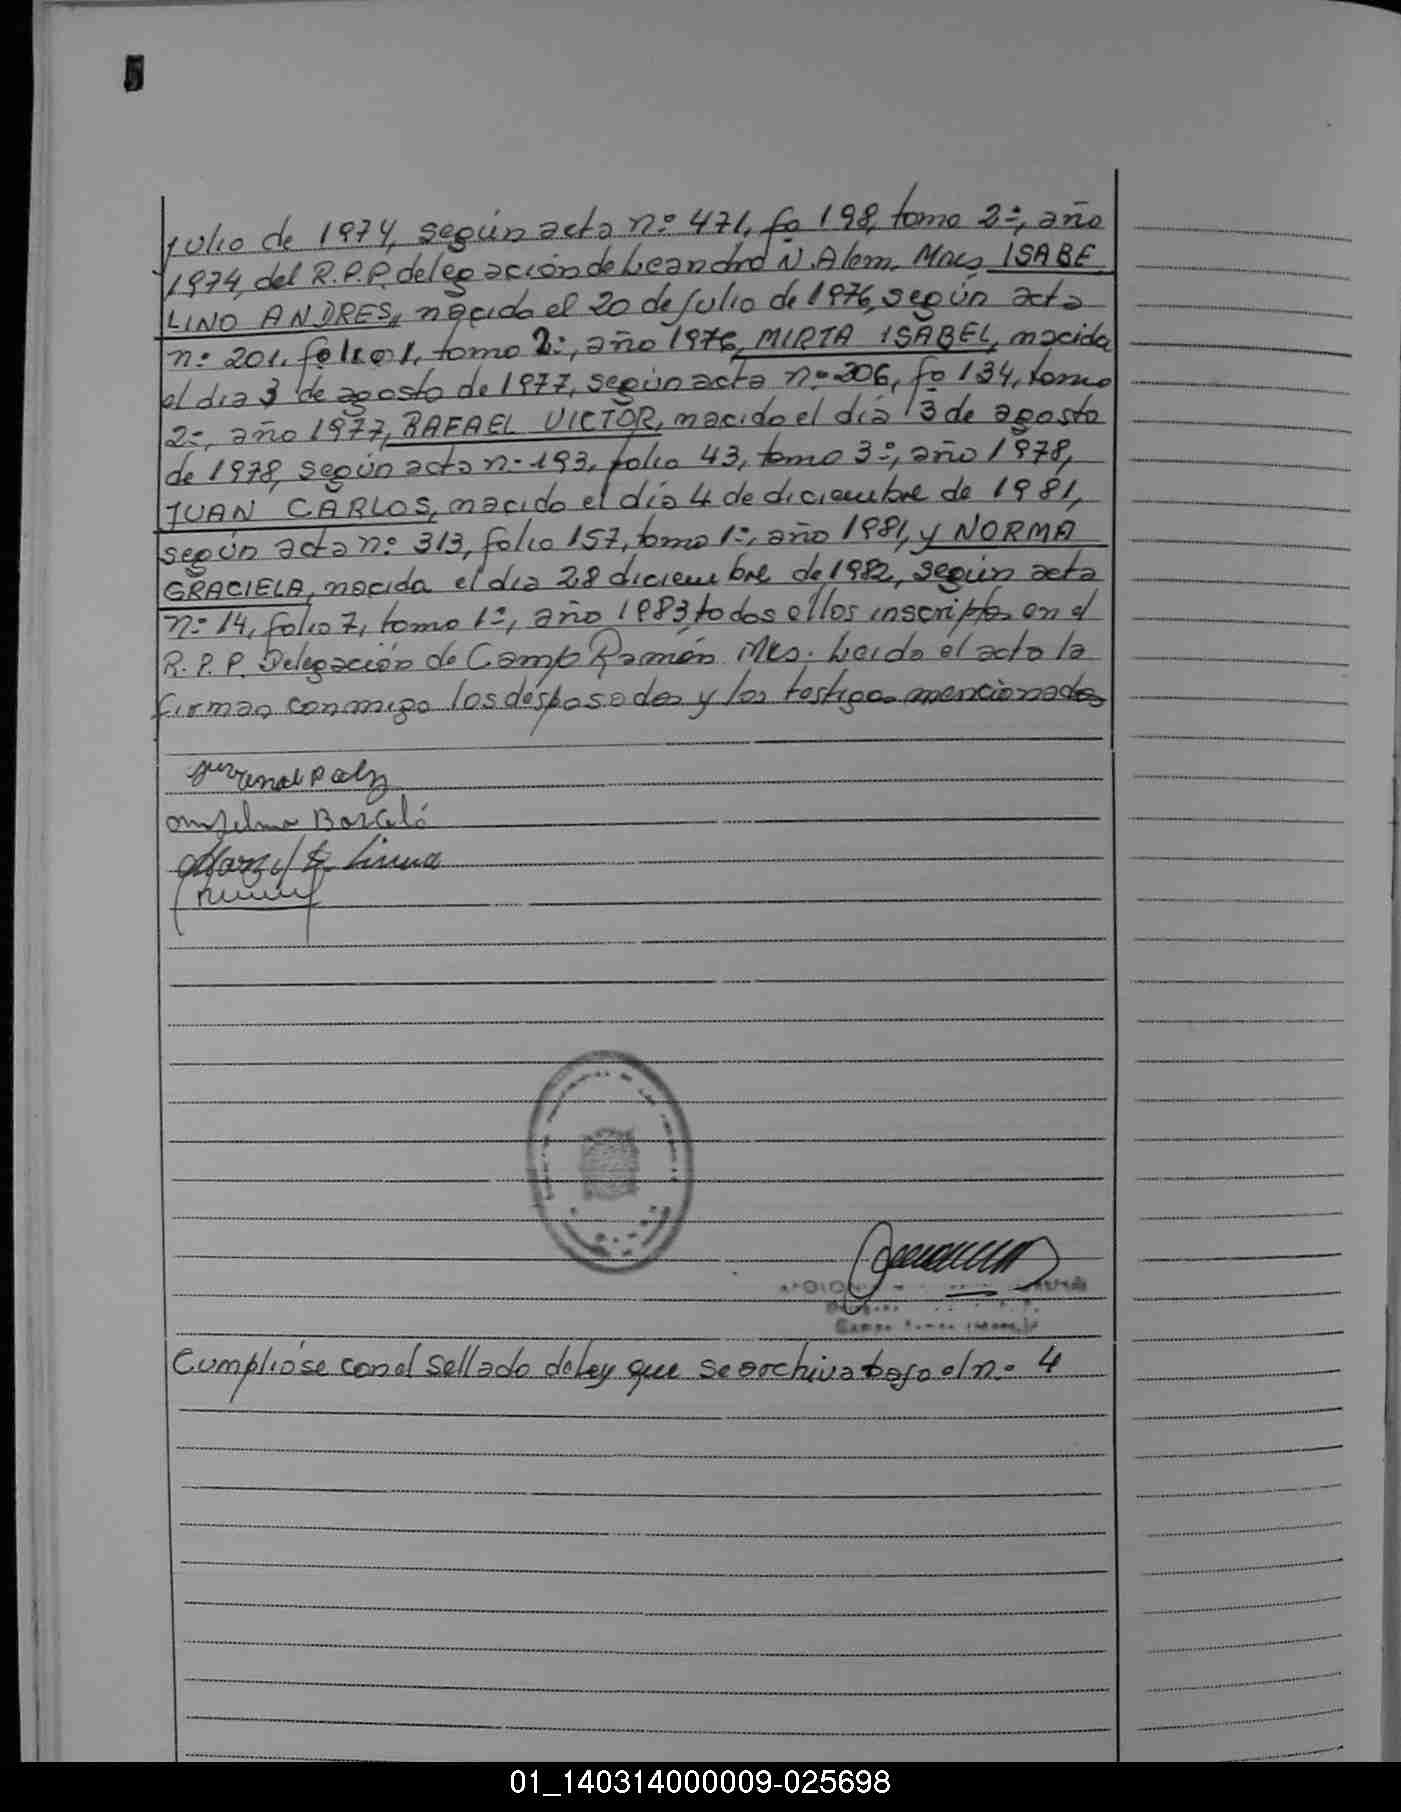 5
julio de 1974, según acta n.º 471, fº 198, tomo 2º, año
1974, del R.P.P. delegación de Leandro N. Alem. Mnes, ISABE
LINO ANDRES, nacido el 20 de julio de 1976, según acta
n.º 201, folio 1, tomo 2º, año 1976, MIRTA ISABEL, nacida
el dia 3 de agosto de 1977, según acta n.º 206, fº 134, tomo
2º, año 1977, RAFAEL VICTOR, nacido el día 13 de agosto
de 1978, según acta n.º 193, folio 43, tomo 3º, año 1978,
JUAN CARLOS, nacido el día 4 de diciembre de 1981,
según acta n.º 313, folio 157, tomo 1º, año 1981, y NORMA
GRACIELA, nacida el día 28 diciembre de 1982, según acta
n.º 14, folio 7, tomo 1º, año 1983, todos ellos inscriptos en el
R.P.P. Delegación de Campo Ramón Mnes. Leida el acta la
firman conmigo los desposados y los testigos mencionados
Barceló
Cumplióse con el sellado de ley que se archiva bajo el n.º 4
01_140314000009-025698